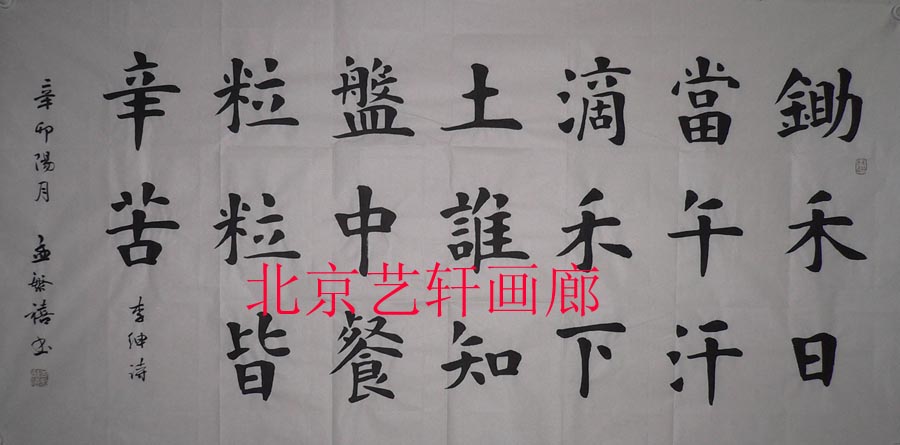 鋤禾日
當午汗
滴禾下
土誰知
盤中餐
粒粒皆
辛苦
李紳诗
辛卯陽月
孟繁禧书
北京艺轩画廊